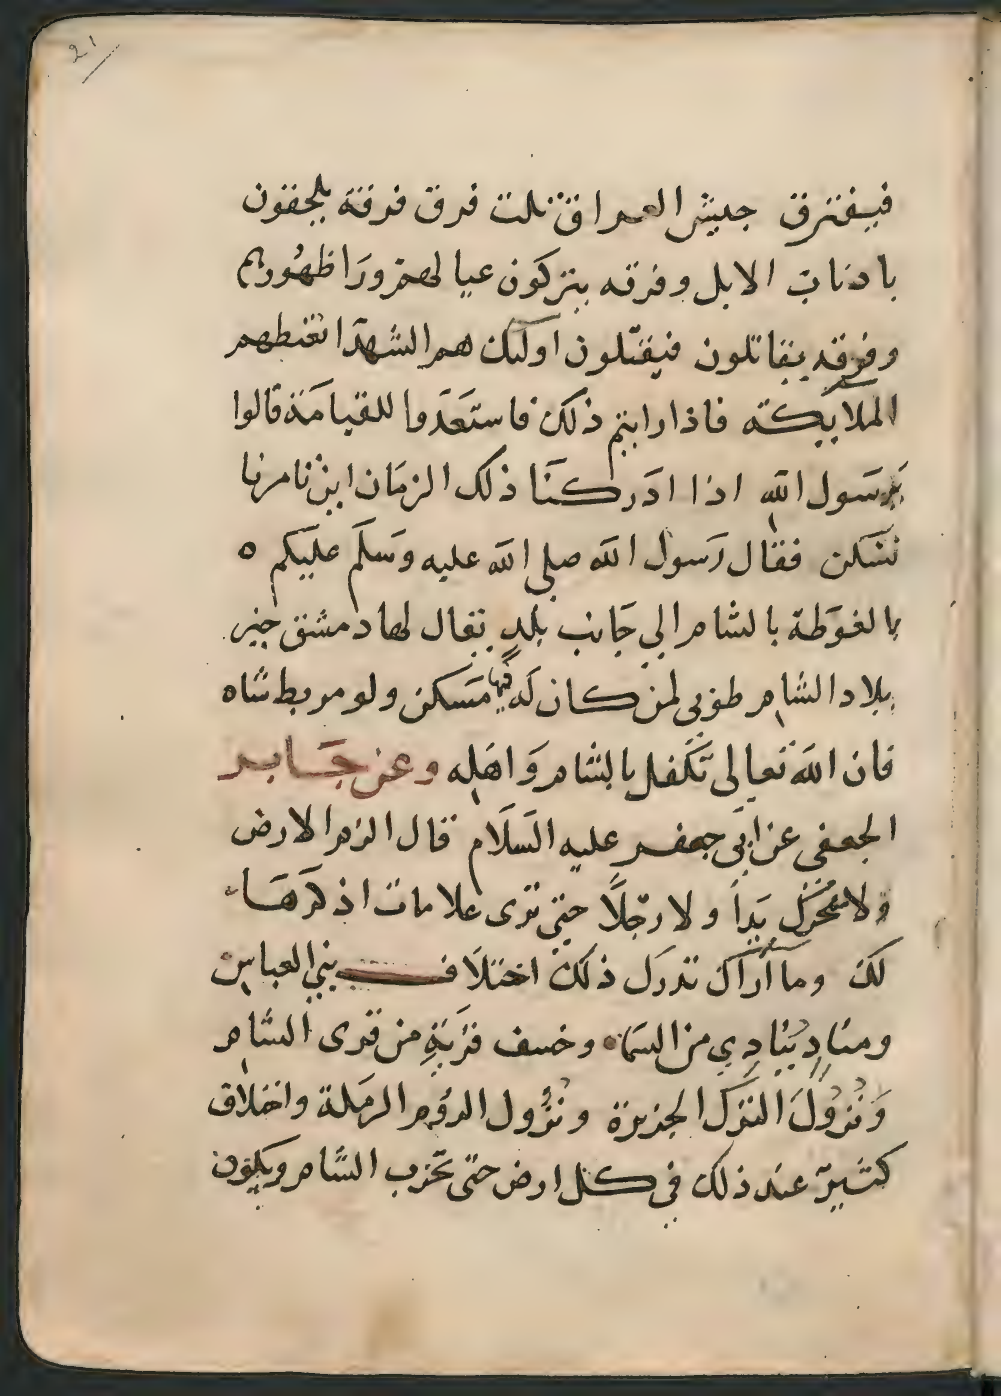 21
فيفترق جيش العراق ثلث فرق فرقة يلحقون
باذناب الابل وفرقه يتركون عيالهم ورا ظهورهم
وفرقه يقاتلون فيقتلون اوليك هم الشهدا تغبطهم
الملاييكته فاذا رايتم ذلك فاستعدوا للقيامة قالوا
يرسول الله اذا ادركنا ذلك الزمان اين تامرنا
نسكن فقال رسول الله صلى الله عليه وسلم عليكم ه
بالغوطة بالشام الي جانب بلد يقال لها دمشق خير
بلاد الشام طوبى لمن كان له فيها مسكن ولو مربط شاه
فان الله تعالى تكفل بالشام واهله وعن جابر
الجعفى عن ابى جعفر عليه السلام قال الزم الارض
ولا تحرك يدا ولا رجلا حتى ترى علامات اذكرها
لك وما اراك تدرك ذلك اختلاف بني العباس
ومناد ينادي من السماء وخسف قرية من قرى الشام
ونزول الترك الجزيرة ونزول الروم الرملة واختلاق
كثير عند ذلك في كل ارض حتى تخرب الشام ويكون